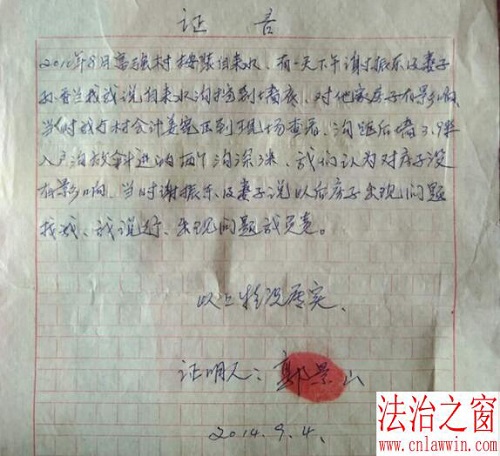 证 言
2010年8月高强村按装自来水，有一天下午谢振东及妻子
找我说自来水沟挖到墙底，对他家房子有影响
当时我与村会计姜 到现场查看，沟距后墙3.9米
入户沟 斜进的 沟深 米，我们认为对房子没
有影响，当时谢振东及妻子说以后房子出现问题
找我，我说行，出现问题我负责。
以上情况属实、
证明人：郭景山
2014.9.4.
法治之窗
www.cnlawwin.com